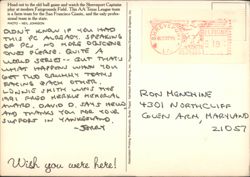 Head out to the old ball game and watch the Shreveport Captains
play at modern Fairgrounds Field. This AA Texas League team
is a farm team for the San Francisco Giants, and the only profes-
sional team in the state.
PHOTO - NEIL JOHNSON
DIDN'T KNOW IF YOU HAD
THIS PC ALREADY. SPEAKING
OF PCs, NO MORE OBSCENE
ONES PLEASE. QUITE A
WORLD SERIES -- BUT THAT'S
WHAT HAPPENS WHEN YOU
GET TWO CRUMMY TEAMS
FACING EACH OTHER.
LONNIE SMITH WINS THE
FRED MERKLE MEMORIAL
AWARD. DAVID D. SAYS HELLO
AND THANKS YOU FOR YOUR
SUPPORT IN YANKEELAND.
-JERRY
Wish you were here!
RON MENCHINE
4301 NORTHCLIFF
GLEN ARM, MARYLAND
21057